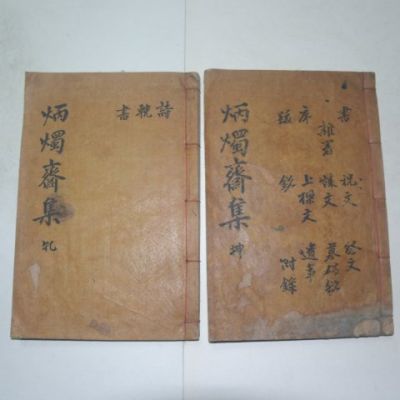 炳燭齋集 乹
詩輓書
炳燭齋集 坤
書 祝文 祭文
雜著 誄文 墓碣銘
序 上樑文 遺事
跋 銘 附錄